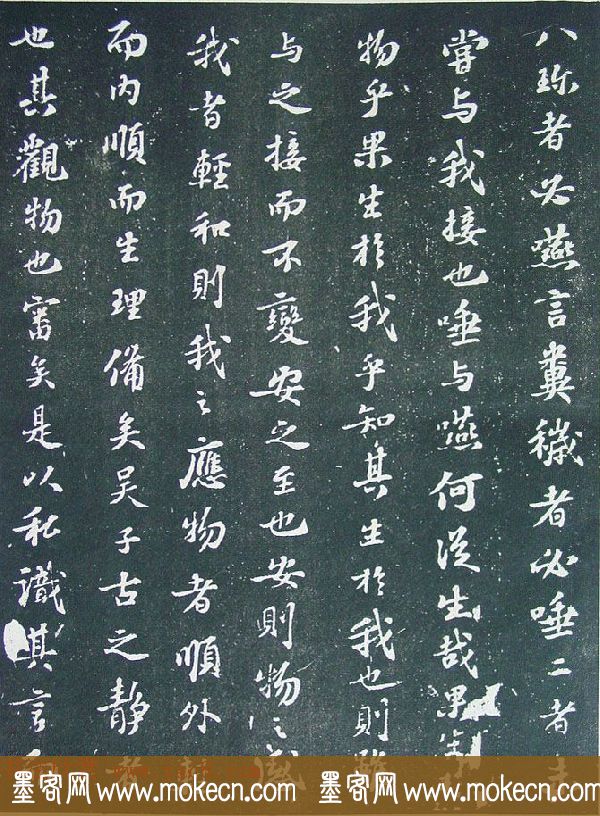 八珍者必嚥言糞穢者必唾二者未
嘗与我接也唾与嚥何從生哉果生於
物乎果生於我乎知其生於我也則雖
与之接而不變安之至也安則物之感
我者輕和則我之應物者順外輕
而内順而生理備矣吳子古之靜者
也其觀物也審矣是以私識其言
墨客网 www.mokecn.com 墨客网 www.mokecn.com